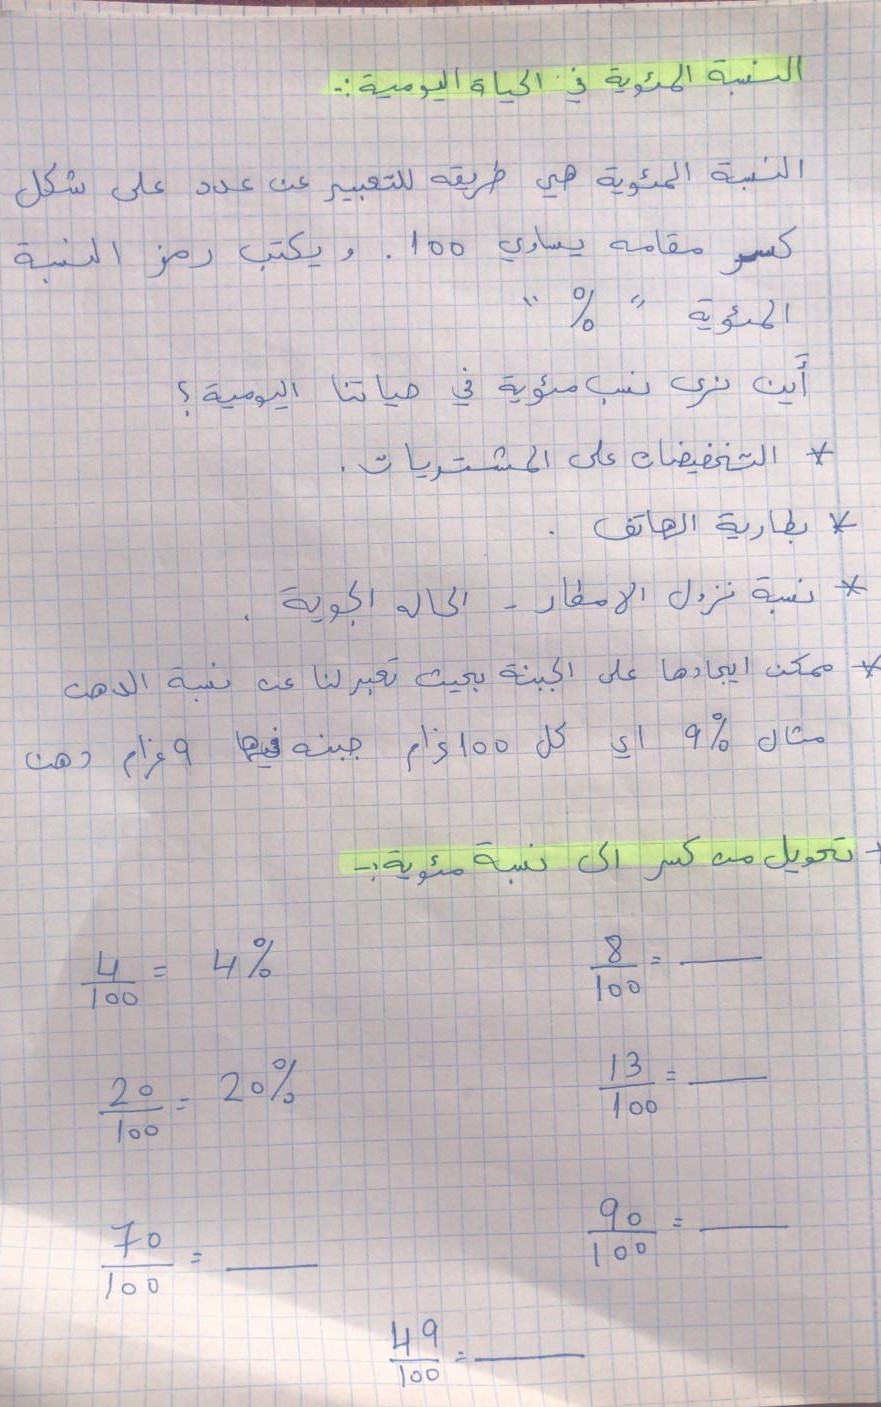 النسبة المئوية في الحياة اليومية :-
النسبة المئوية هي طريقه للتعبير عن عدد على شكل
كسر مقامه يساوي 100 . ويكتب رمز النسبة
المئوية " % "
أين نرى نسب مئوية في حياتنا اليومية ؟
* التخفيضات على المشتريات .
* بطارية الهاتف .
* نسبة نزول الامطار - الحاله الجوية .
* ممكن ايجادها على الجبنة بحيث تعبر لنا عن نسبة الدهن
مثال 9% اي كل 100 غرام جبنه فيها 9 غرام دهن
+ تحويل من كسر الى نسبة مئوية :-
4/100 = 4%    8/100 = ____
20/100 = 20%    13/100 = ____
70/100 = ____    90/100 = ____
49/100 = ____